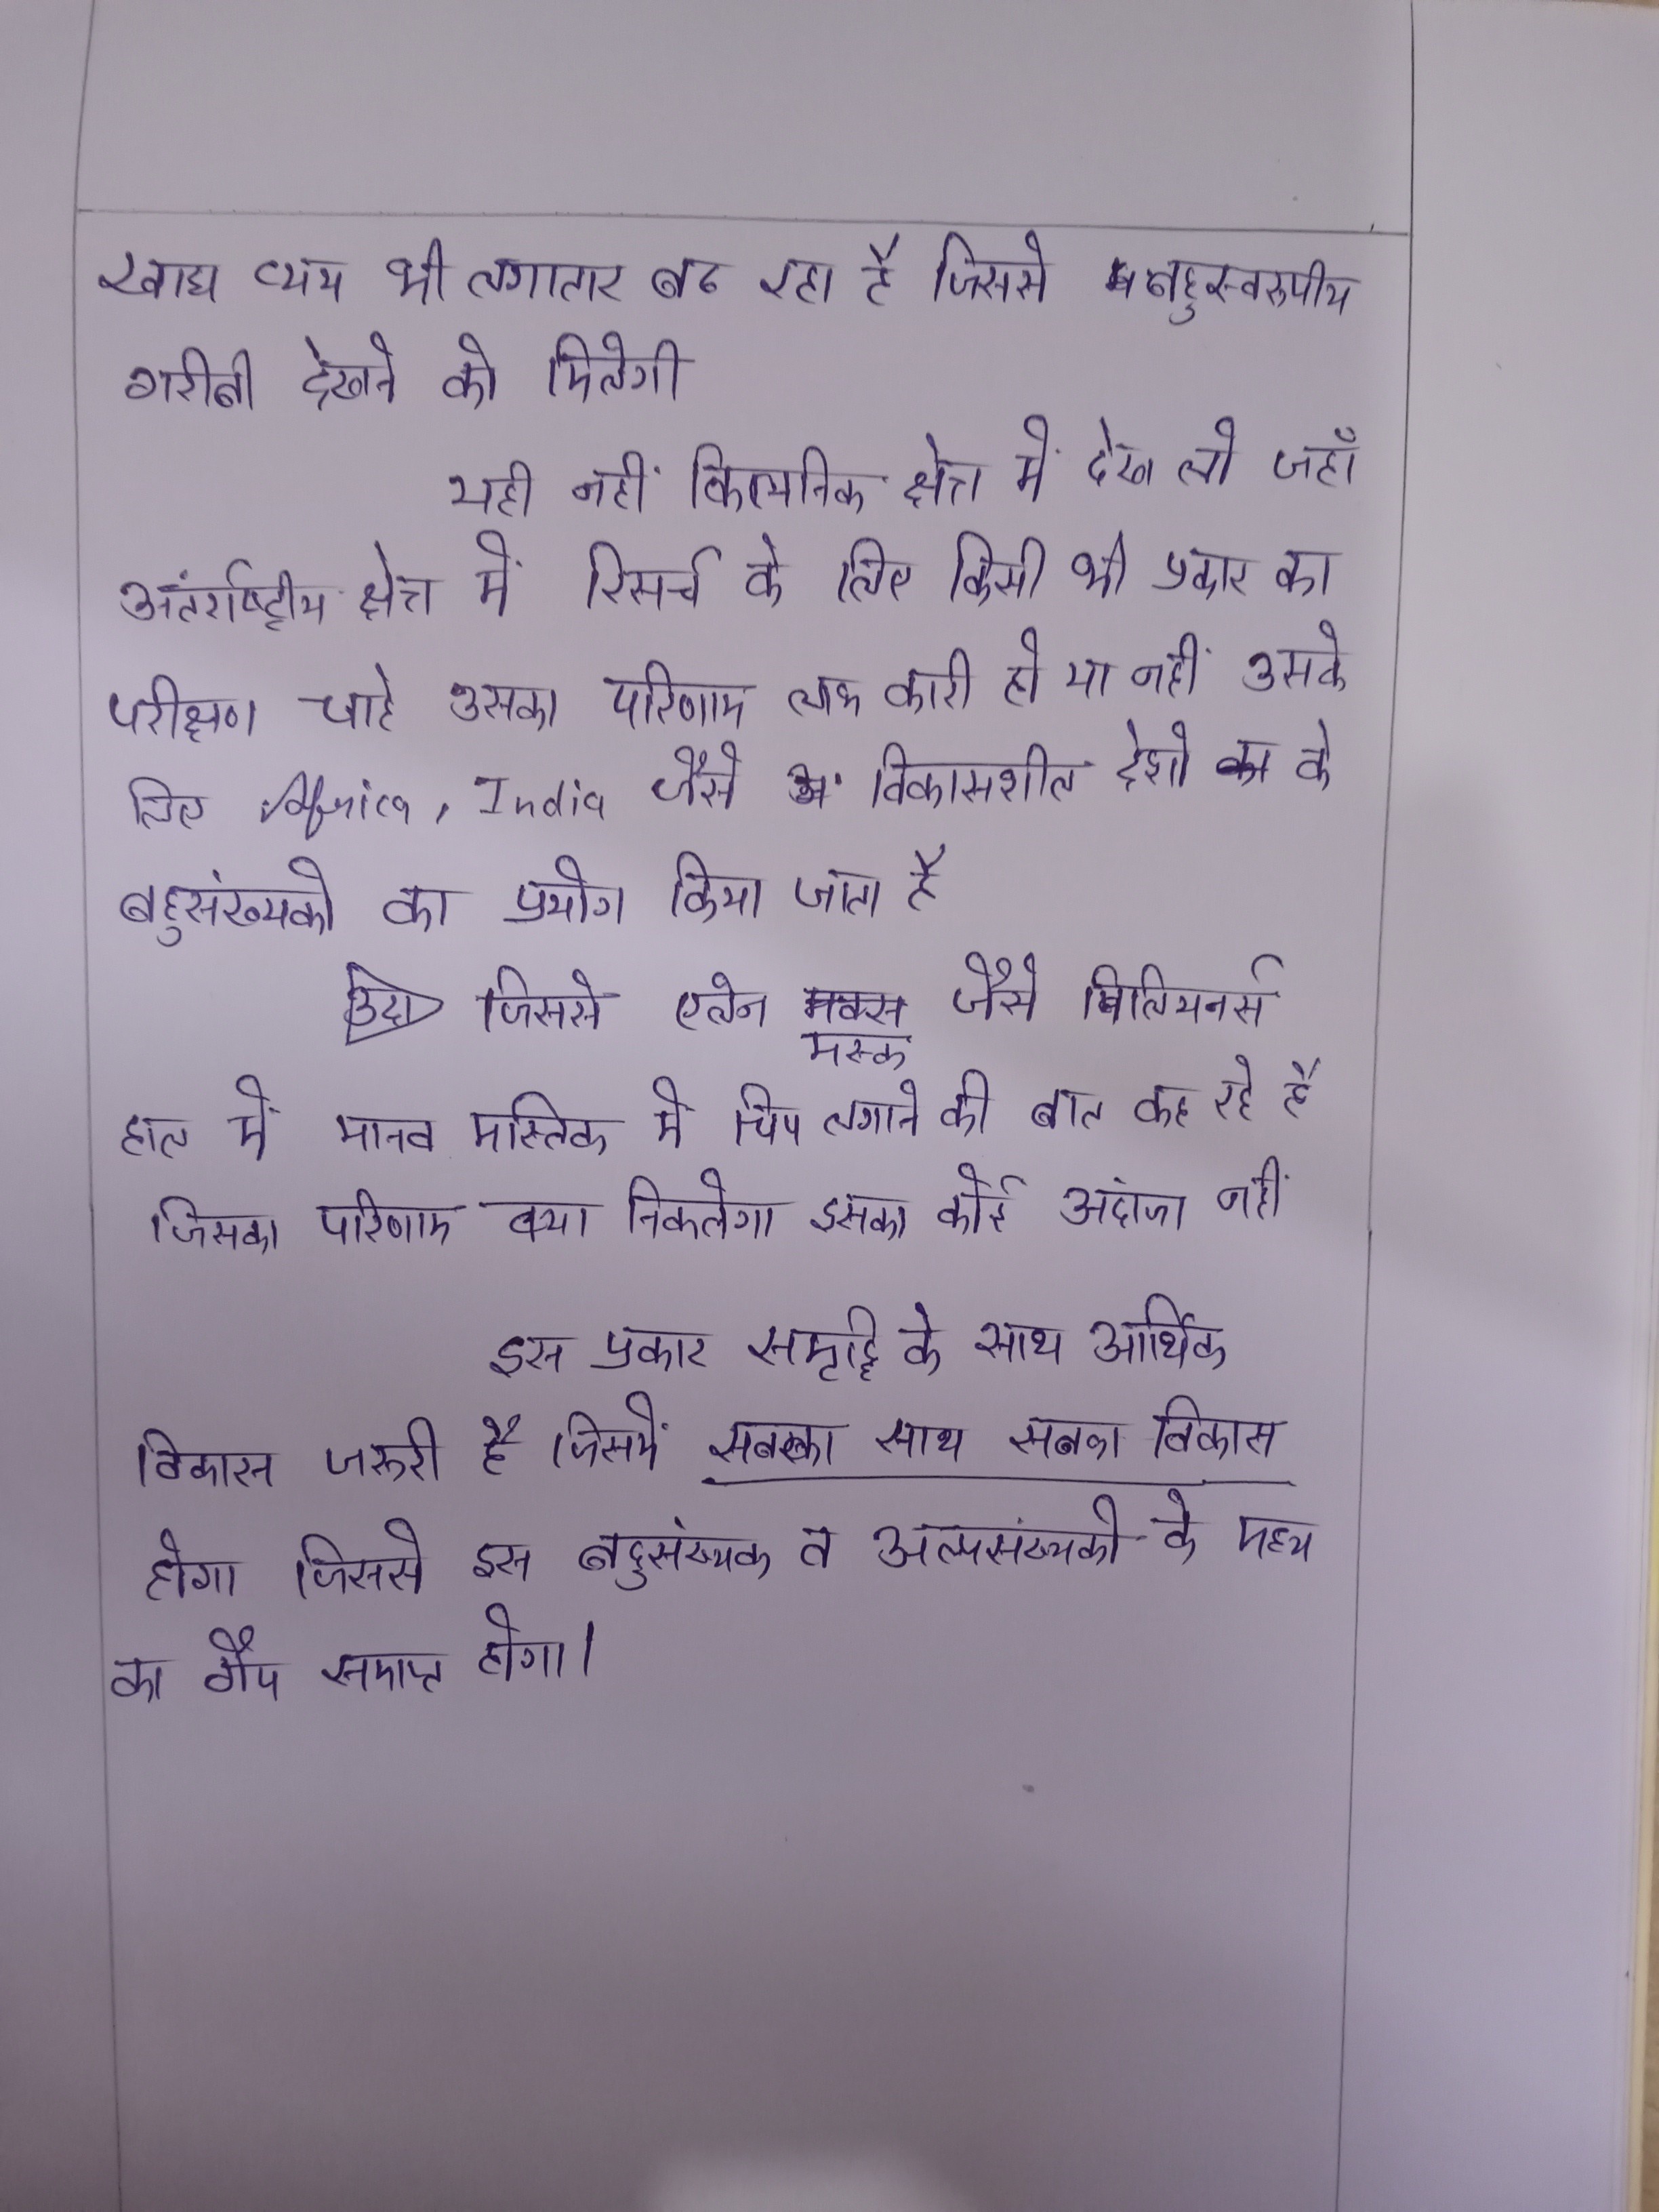 खाद्य व्यय भी लगातार बढ रहा है जिससे बहुस्वरुपीय
गरीबी देखने को मिलेगी
यही नहीं क्षेत्र में देख लो जहाँ
अंतर्राष्ट्रीय क्षेत्र में रिसर्च के लिए किसी भी प्रकार का
परीक्षण चाहे उसका परिणाम लाभ कारी हो या नहीं उसके
लिए Africa, India जैसे विकासशील देशो के
बहुसंख्यको का प्रयोग किया जाता है
उदा जिससे एलेन मक्स जैसे बिलियनर्स
मस्क
हाल में मानव मस्तिक में चिप लगाने की बात कह रहे है
जिसका परिणाम क्या निकलेगा इसका कोई अदांजा नहीं
इस प्रकार समृद्दि के साथ आर्थिक
विकास जरुरी है जिसमें सबका साथ सबका विकास
होगा जिससे इस बहुसंख्यक व अल्पसंख्यको के मध्य
का गैप समाप्त होगा।